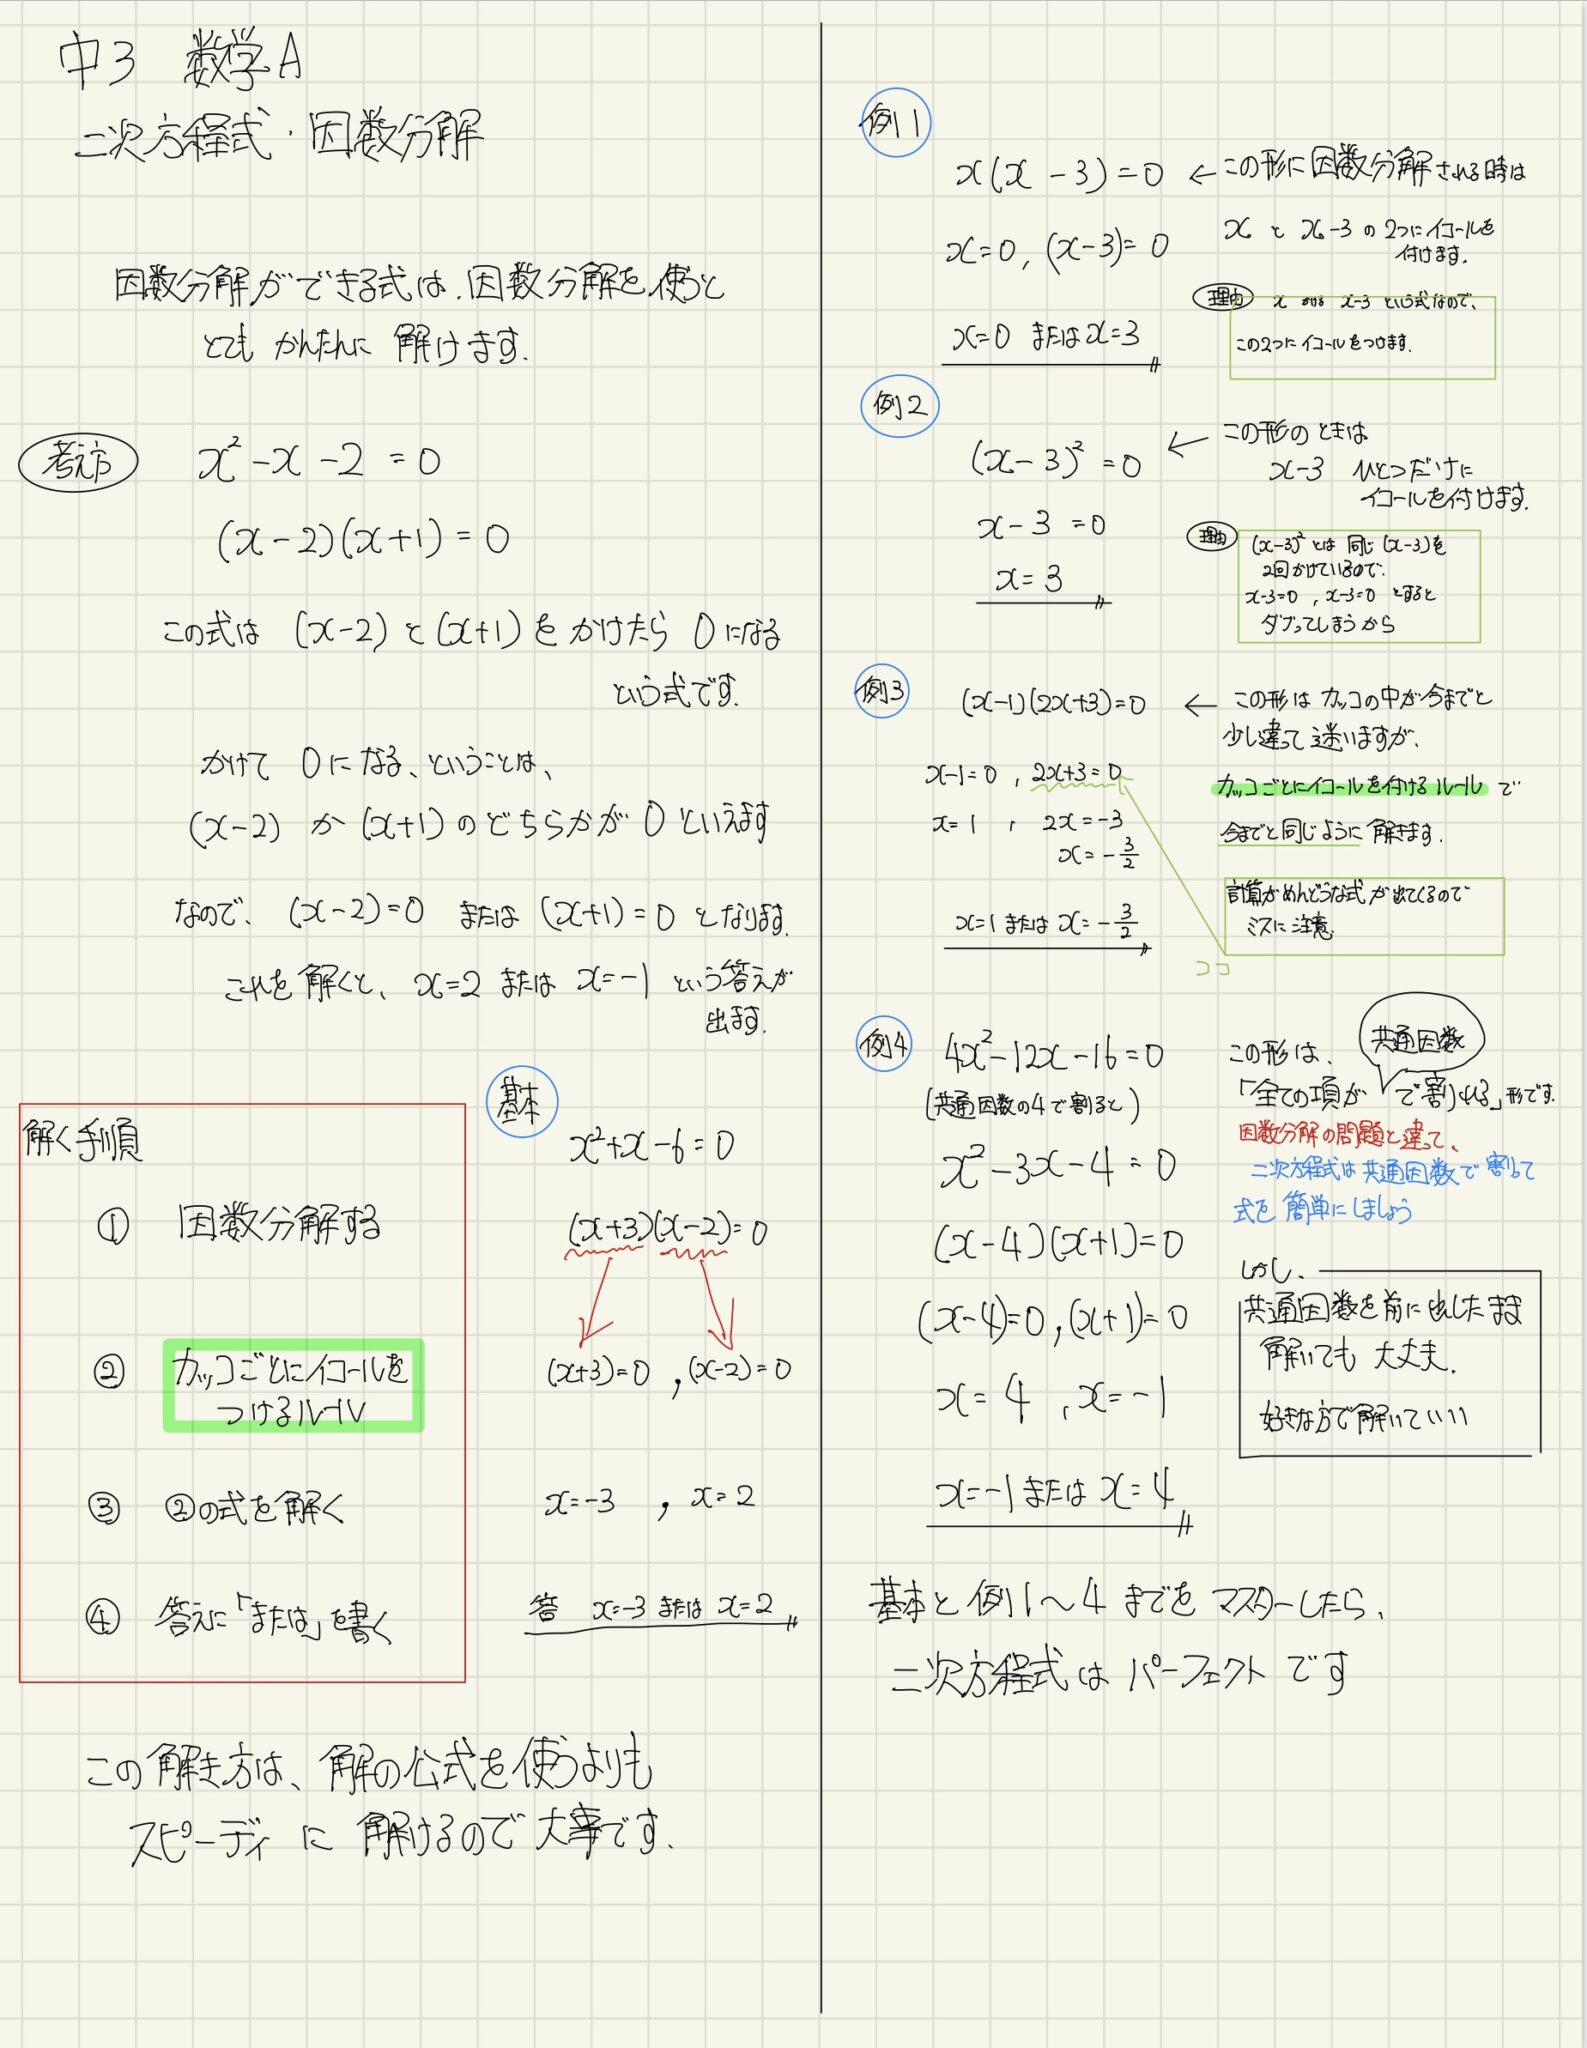 中3 数学A
二次方程式・因数分解
因数分解ができる式は、因数分解を使うと
とても かんたんに 解けます.
考え方
x² - x - 2 = 0
(x-2)(x+1) = 0
この式は (x-2) と (x+1) を かけたら 0 になる
という式です.
かけて 0 になる、ということは、
(x-2) か (x+1) のどちらかが 0 といえます
なので、(x-2)=0 または (x+1)=0 となります.
これを 解くと、x=2 または x=-1 という答えが
出ます.
解く手順
① 因数分解する
② カッコごとにイコールを
つけるルール
③ ②の式を解く
④ 答えに「または」を書く
基本
x²+x-6=0
(x+3)(x-2)=0
(x+3)=0 , (x-2)=0
x=-3 , x=2
答 x=-3 または x=2
この解き方は、解の公式を使うよりも
スピーディ に 解けるので 大事です.
例1
x(x-3)=0 ← この形に因数分解される時は
x=0, (x-3)=0
x と x-3 の 2つにイコールを
付けます.
x=0 または x=3
理由 x かける x-3 という式なので、
この2つに イコールをつけます.
例2
(x-3)²=0 ← この形の ときは
x-3 ひとつだけに
イコールを付けます.
x-3=0
x=3
理由 (x-3)² とは 同じ (x-3)を
2回かけているので.
x-3=0 , x-3=0 とすると
ダブってしまうから
例3
(x-1)(2x+3)=0 ← この形は カッコの中が今までと
少し違って 迷いますが.
x-1=0 , 2x+3=0
カッコごとにイコールを付けるルール で
x=1 , 2x=-3
x=-3/2
今までと同じように 解きます.
x=1 または x=-3/2
計算がめんどうな式が出てくるので
ミスに注意.
ココ
例4
4x²-12x-16=0
(共通因数の4で割ると)
x²-3x-4=0
(x-4)(x+1)=0
(x-4)=0, (x+1)=0
x=4 , x=-1
x=-1 または x=4
この形は、
共通因数
「全ての項が で割れる」形です.
因数分解の問題と違って、
二次方程式は共通因数で割って
式を簡単にしましょう
しかし、
共通因数を前に出したまま
解いても 大丈夫.
好きな方で解いていい
基本と 例1〜4 までを マスターしたら、
二次方程式は パーフェクト です